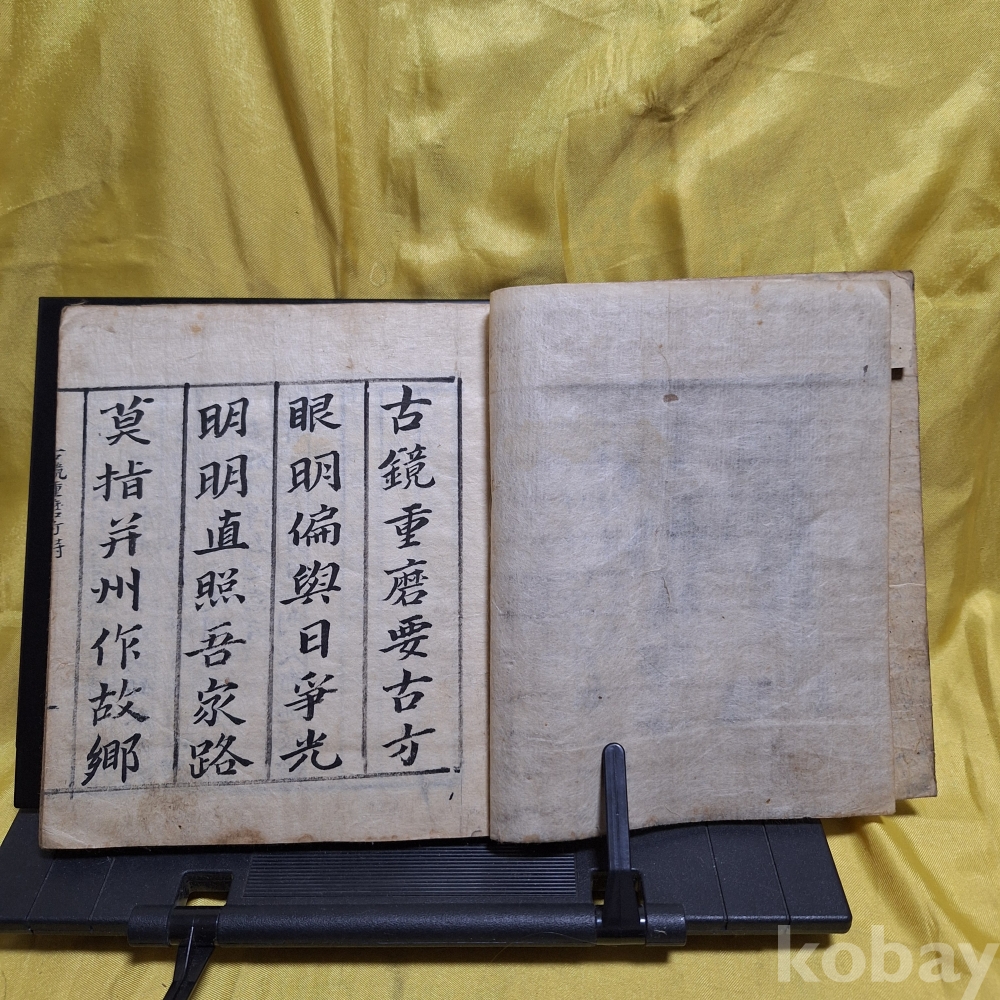 古鏡重磨要古方
眼明偏與日爭光
明明直照吾家路
莫指并州作故鄉
kobay